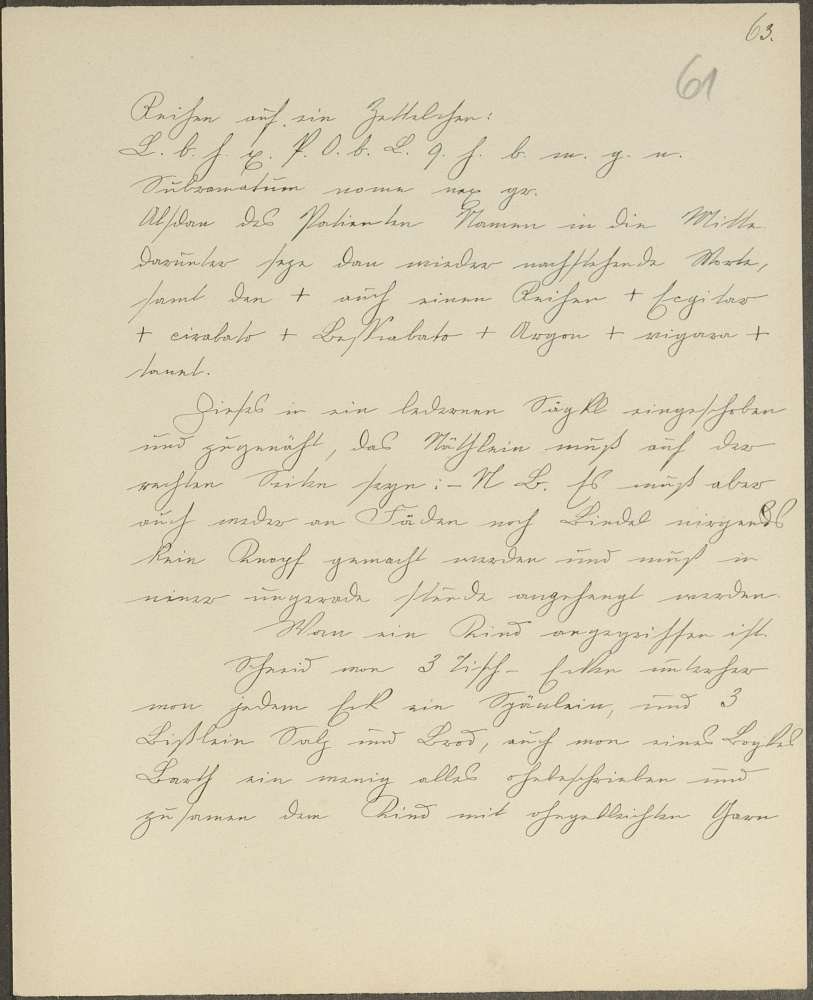 63.
61
Reihen auf ein Zettelchen:
L. b. f. x. P. O. b. L. q. f. b. m. g. n.
Subromatum nome nex gr.
Alsdan des Patienten Namen in die Mitte.
darunter seze dan wieder nachstehende Worte,
samt den + auch einen Reihen + Ecgitar
+ cirabato + Besstabato + Argon + vigara +
tanet.
Dieses in ein ledernen Säckl eingeschoben
und zugenäht, das Näthlein muß auf der
rechten Seiten seyn: – N B. Es muß aber
auch weder an Fäden noch Bindel nirgends
kein Knopf gemacht werden und muß in
einer ungerade stunde angehengt werden.
Wan ein Kind angegriffen ist.
Schneid von 3 Tisch – Ecken unterher
von jedem Eck ein Spänlein, und 3
Bißlein Salz und Brod, auch von eines Bockes
Barth ein wenig alles obbeschrieben und
zusamen dem Kind mit ohngebleichten Garn